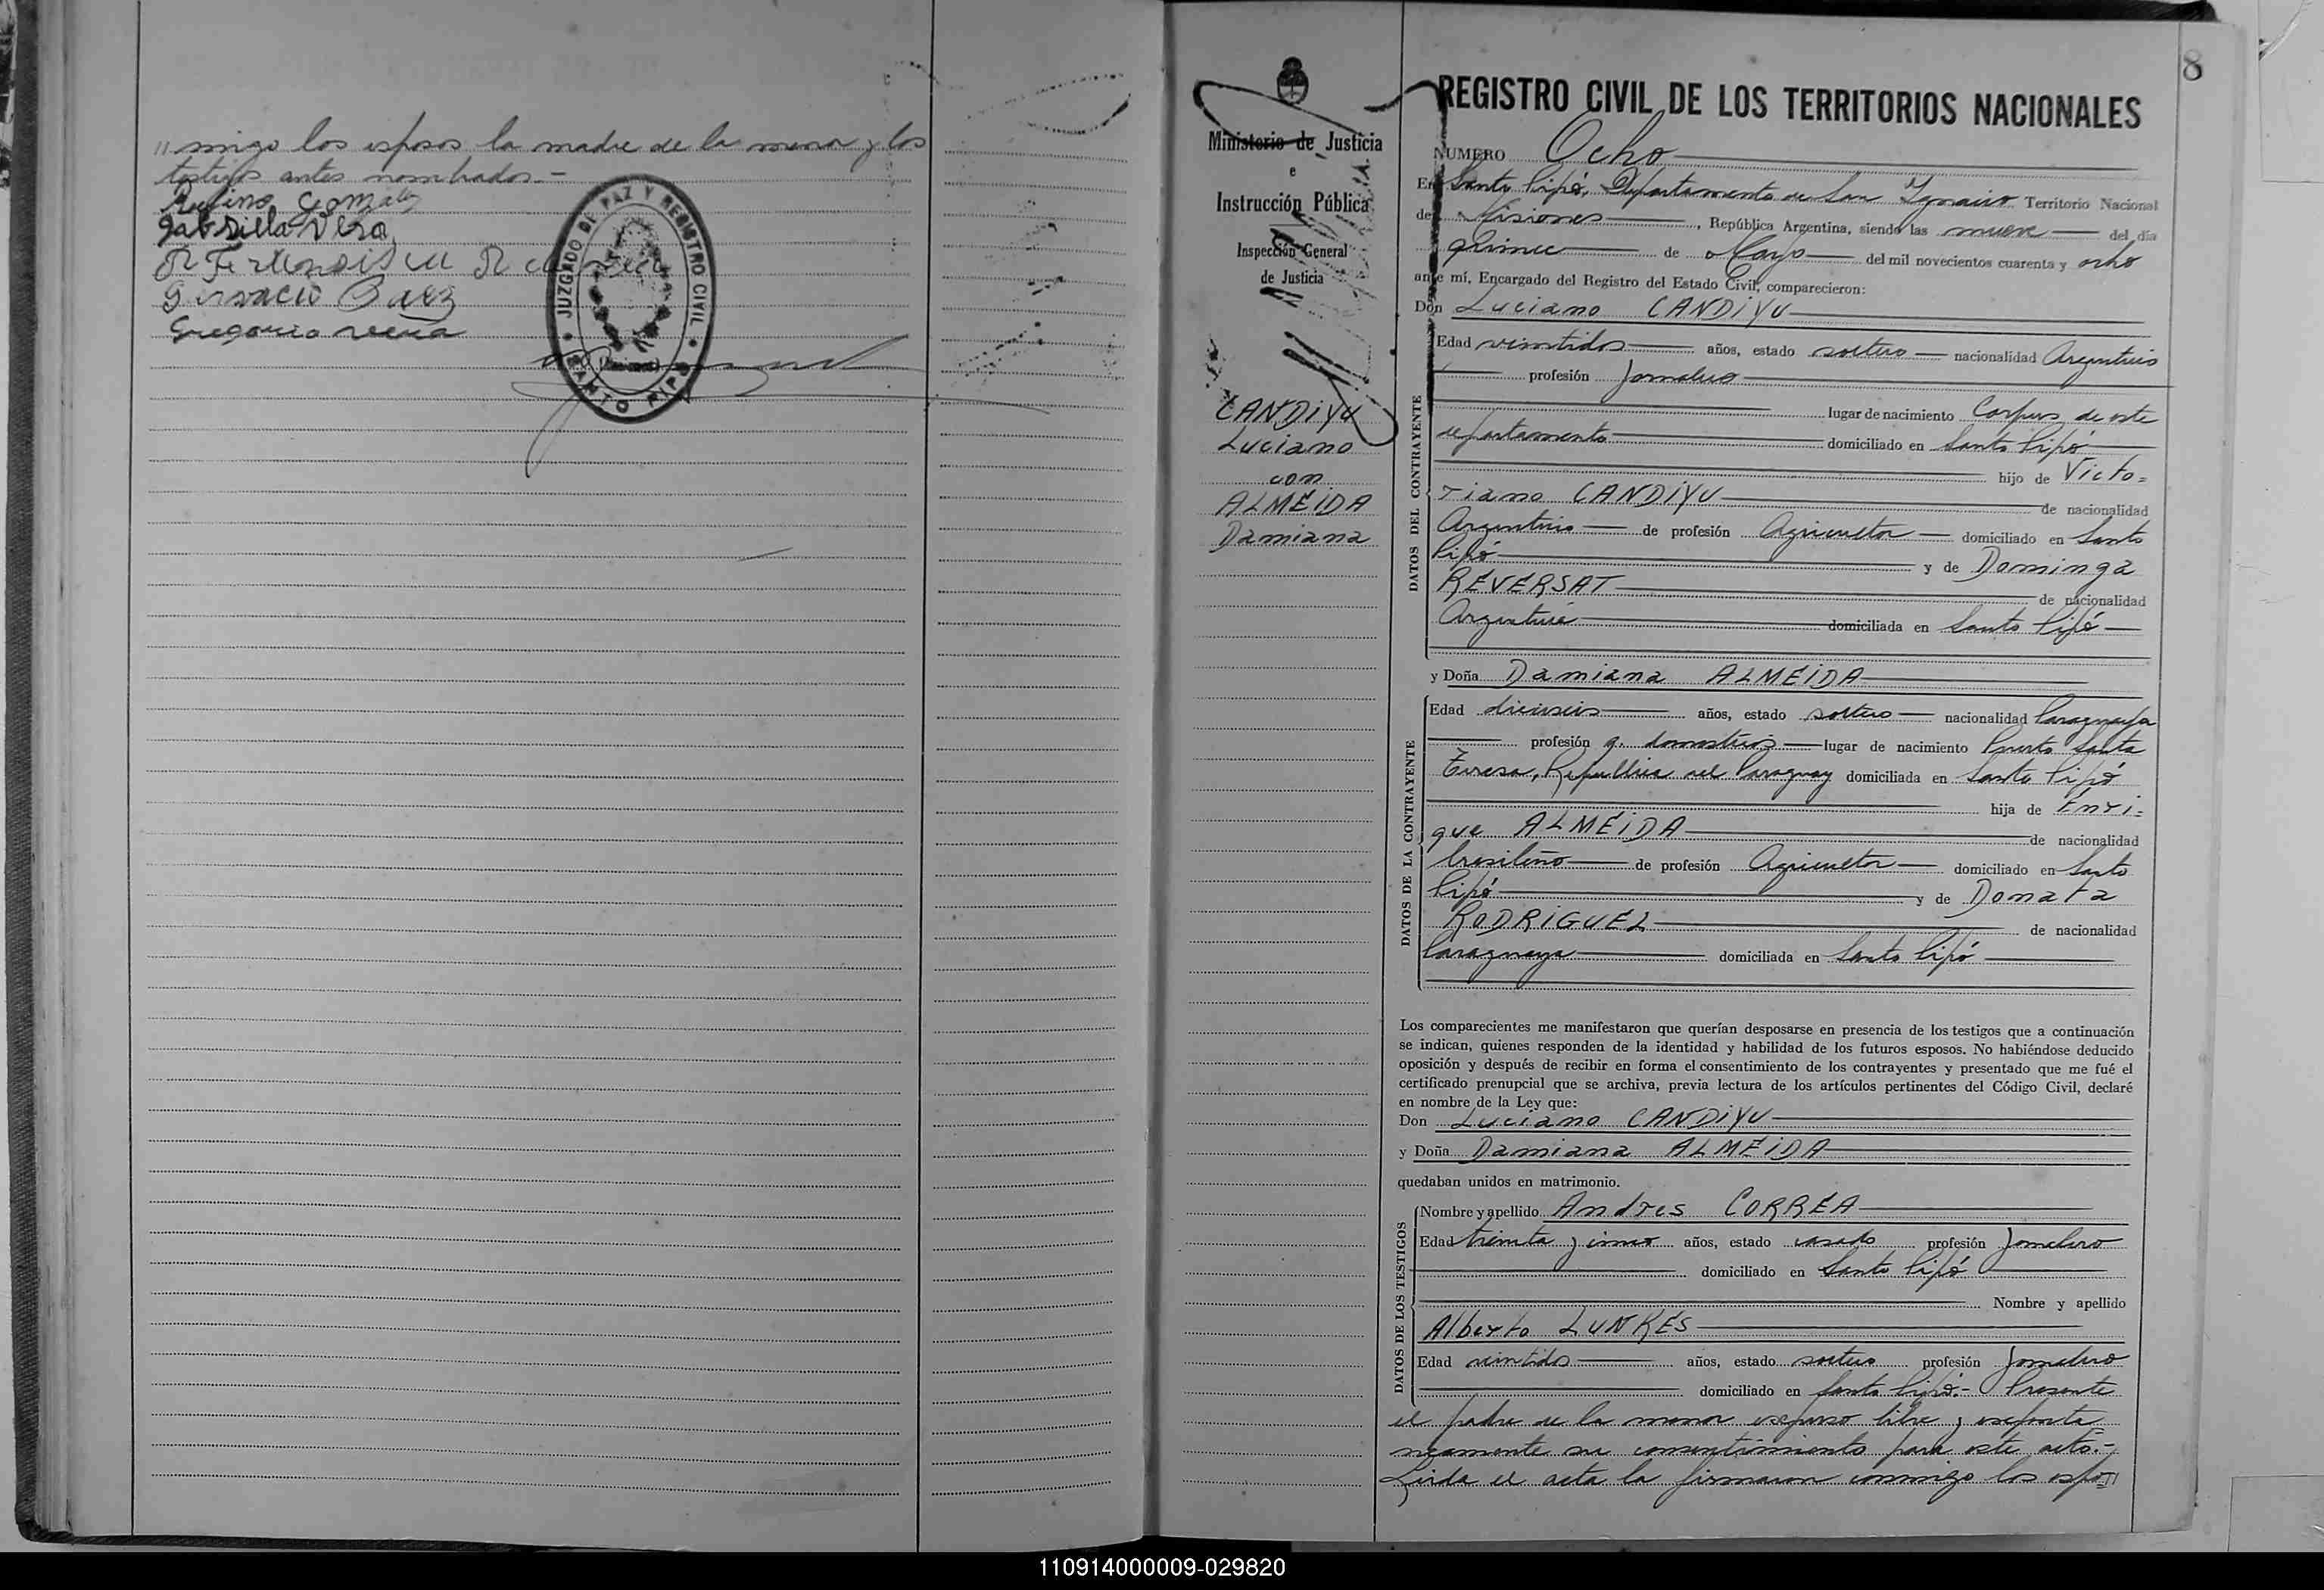 〃 migo los esposos la madre de la menor y los
testigos antes nombrados.-
Rufino Gomalez
Gabriella Vera
Gervacio Paez
Gregorio
JUZGADO DE PAZ Y REGISTRO CIVIL
(Misiones)
SANTO PIPÓ
8
Ministerio de Justicia
e
Instrucción Pública
Inspección General
de Justicia
CANDiYU
Luciano
con
ALMEiDA
Damiana
REGISTRO CIVIL DE LOS TERRITORIOS NACIONALES
NUMERO Ocho
En Santo Pipó, Departamento de San Ignacio Territorio Nacional
de Misiones, República Argentina, siendo las nueve del día
quince de Mayo del mil novecientos cuarenta y ocho
ante mí, Encargado del Registro del Estado Civil, comparecieron:
Don Luciano CANDiYU
DATOS DEL CONTRAYENTE
Edad veintidos años, estado soltero nacionalidad Argentino
profesión Jornalero
lugar de nacimiento Corpus de este
departamento domiciliado en Santo Pipó
hijo de Victo=
riano CANDiYU de nacionalidad
Argentino de profesión Agricultor domiciliado en Santo
Pipó y de Dominga
REVERSAT de nacionalidad
Argentina domiciliada en Santo Pipó
y Doña Damiana ALMEiDA
DATOS DE LA CONTRAYENTE
Edad dieciseis años, estado soltera nacionalidad Paraguaya
profesión q. domesticos lugar de nacimiento Puerto Santa
Teresa, Republica del Paraguay domiciliada en Santo Pipó
hija de Enri=
que ALMEiDA de nacionalidad
brasileño de profesión Agricultor domiciliado en Santo
Pipó y de Donata
RODRiGUEZ de nacionalidad
Paraguaya domiciliada en Santo Pipó
Los comparecientes me manifestaron que querían desposarse en presencia de los testigos que a continuación
se indican, quienes responden de la identidad y habilidad de los futuros esposos. No habiéndose deducido
oposición y después de recibir en forma el consentimiento de los contrayentes y presentado que me fué el
certificado prenupcial que se archiva, previa lectura de los artículos pertinentes del Código Civil, declaré
en nombre de la Ley que:
Don Luciano CANDiYU
y Doña Damiana ALMEiDA
quedaban unidos en matrimonio.
DATOS DE LOS TESTIGOS
Nombre y apellido Andres CORREA
Edad treinta y cinco años, estado casado profesión Jornalero
domiciliado en Santo Pipó
Nombre y apellido
Alberto LUNKES
Edad veintidos años, estado soltero profesión Jornalero
domiciliado en Santo Pipó.- Presente
el padre de la menor expreso libre y esponta=
neamente su consentimiento para este acto.-
Leida el acta la firmaron conmigo los espo〃
110914000009-029820